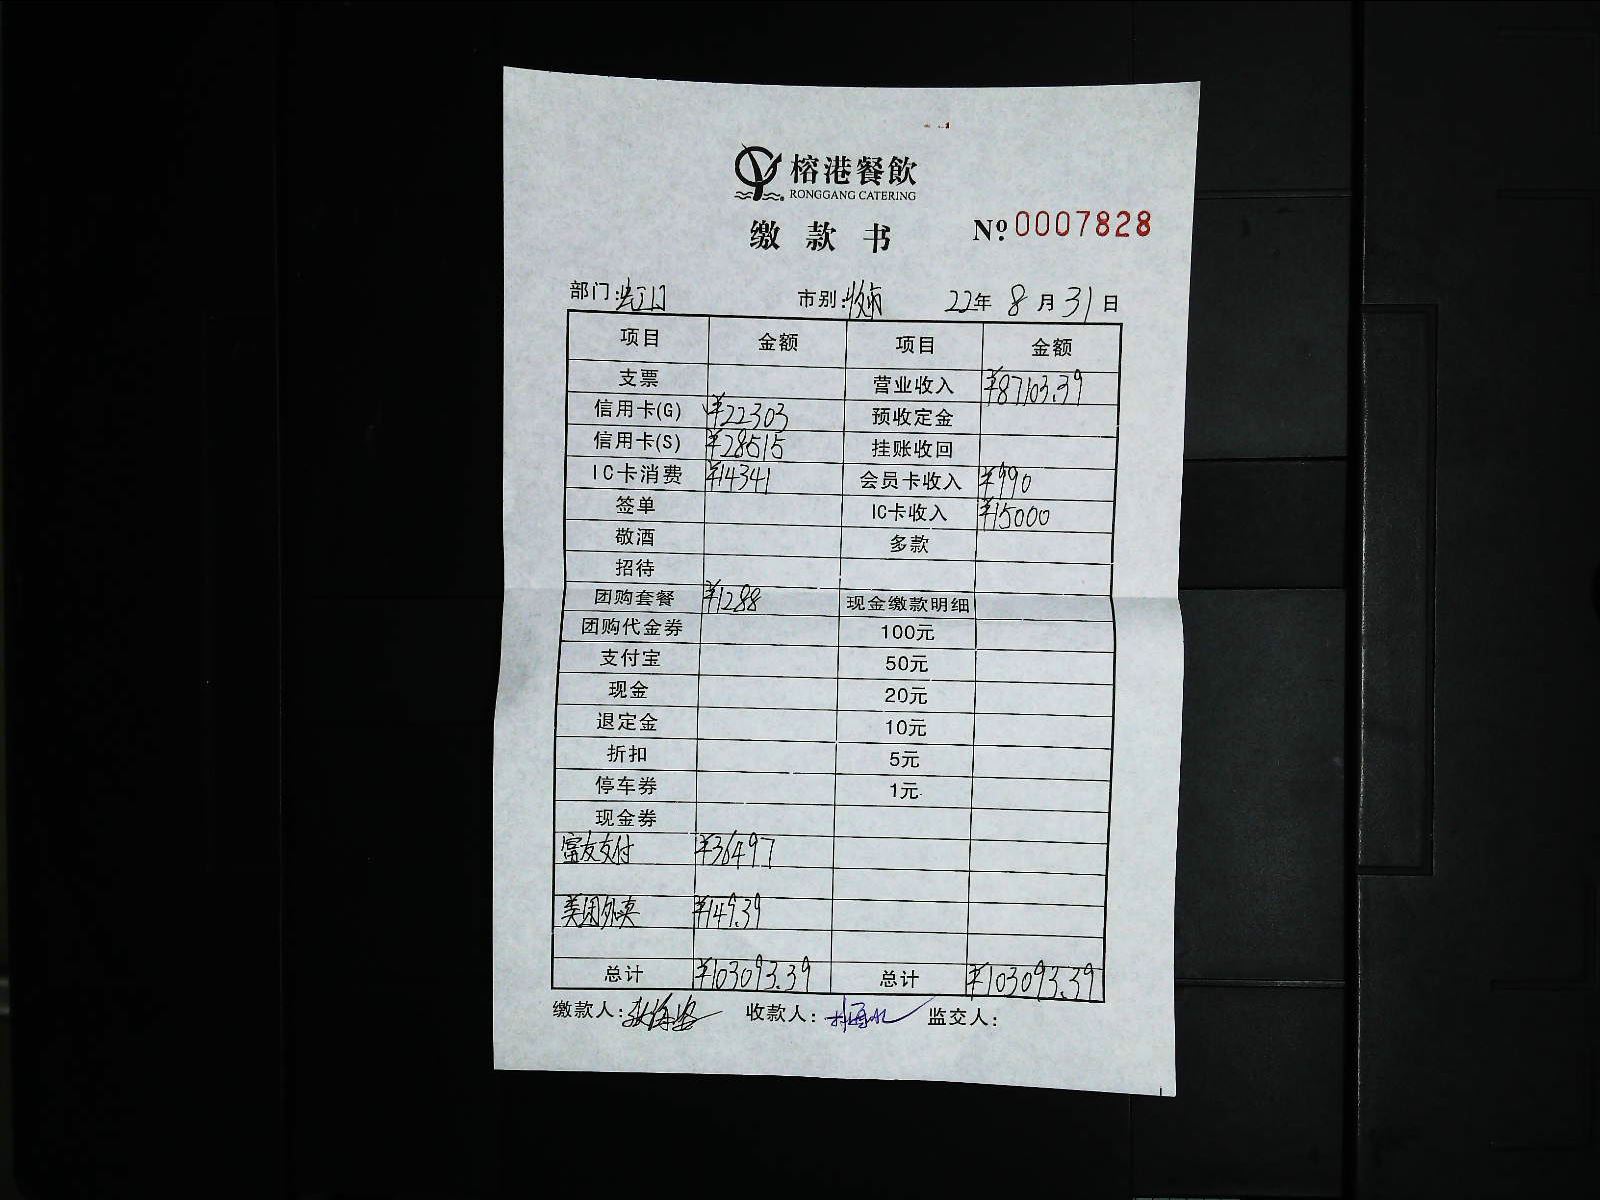 榕港餐飲
RONGGANG CATERING
缴款书 No.0007828
部门: 市别: 22年8月31日
项目 金额 项目 金额
支票 营业收入 ¥87103.39
信用卡(G) ¥22303 预收定金
信用卡(S) ¥28515 挂账收回
IC卡消费 ¥14341 会员卡收入 ¥990
签单 IC卡收入 ¥15000
敬酒 多款
招待
团购套餐 ¥1288 现金缴款明细
团购代金券 100元
支付宝 50元
现金 20元
退定金 10元
折扣 5元
停车券 1元
现金券
富友支付 ¥36497
美团外卖 ¥149.39
总计 ¥103093.39 总计 ¥103093.39
缴款人: 收款人: 监交人: